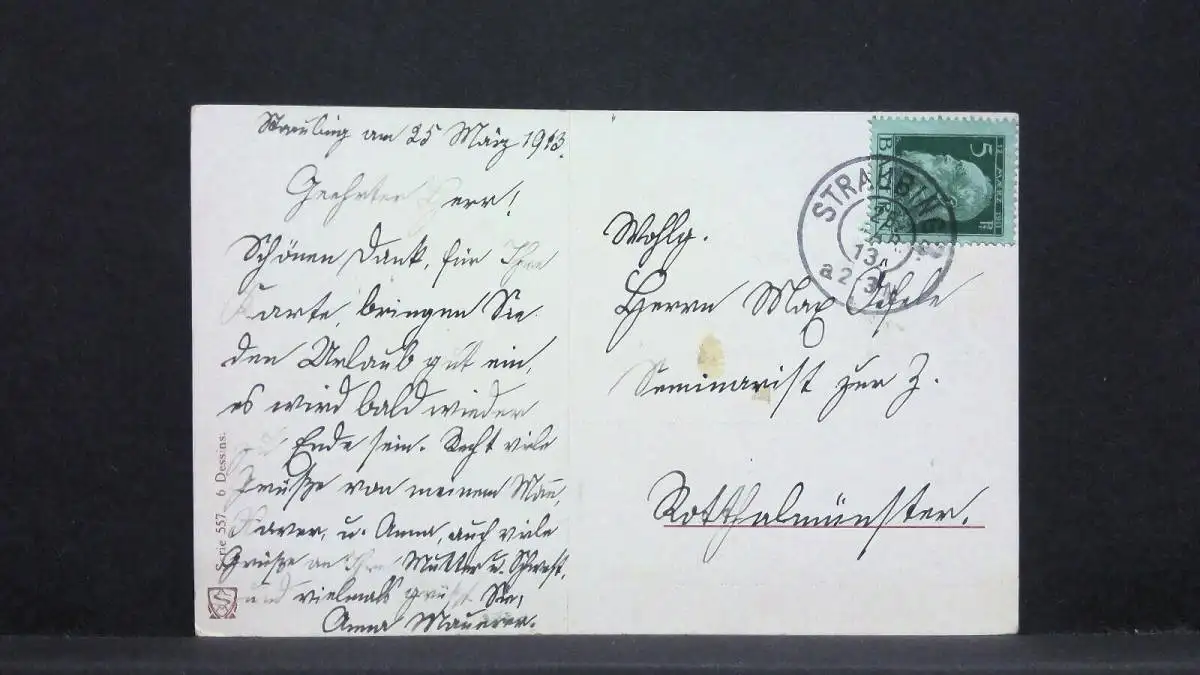 Straubing am 25 März 1913.
Geehrter Herr!
Schönen Dank, für Ihre
Karte, bringen Sie
den Urlaub gut ein,
es wird bald wieder
Ende sein. Recht viele
Grüße von meinem Mann,
Xaver, u. Anna, auch viele
Grüße an Ihre Mutter u. Schwest.
und vielmals grüßt Sie,
Anna Mauerer.
Serie 557 6 Dessins.
12. MÄRZ 1911
5
STRAUBING
13.
a 2 3 N
Wohlg.
Herrn Max
Seminarist zur Z.
Rotthalmünster.